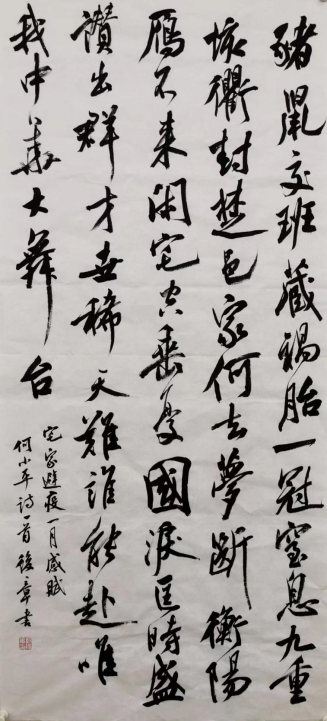 豬鼠交班藏禍胎一冠窒息九重
垓衢封楚邑家何去夢斷衡陽
雁不来閑宅空垂憂國淚匡時盛
讚出群才世稀天難誰能赴唯
我中華大舞台
宅家避疫一月感賦
何小年诗一首章書